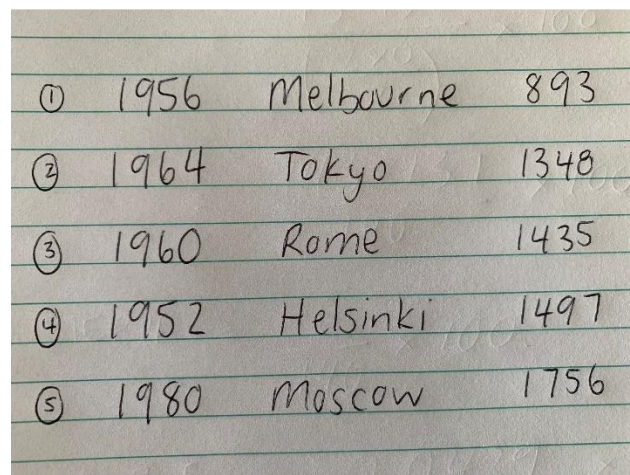 ① 1956 Melbourne 893
② 1964 Tokyo 1348
③ 1960 Rome 1435
④ 1952 Helsinki 1497
⑤ 1980 Moscow 1756